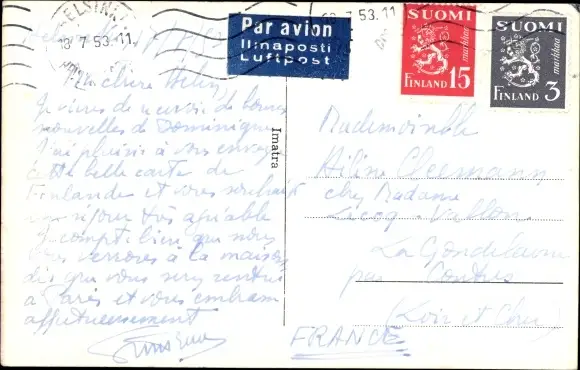 HELSINKI
18.7.53.11
Par avion
Ilmaposti
Luftpost
18.7.53.-11
SUOMI
markkaa
15
FINLAND
SUOMI
markkaa
3
FINLAND
Ma chère
Je viens de recevoir de bonnes
nouvelles de Dominique
J'ai plaisir à vous envoyer
cette belle carte de
Finlande et vous souhaite
un séjour très agréable
Je compte bien que nous
vous verrons à la maison
dès que vous serez
à Paris et vous embrasse
affectueusement
Imatra
Mademoiselle
chez Madame
Lecoq-Vallon
La
par Contres
(Loir et Cher)
FRANCE